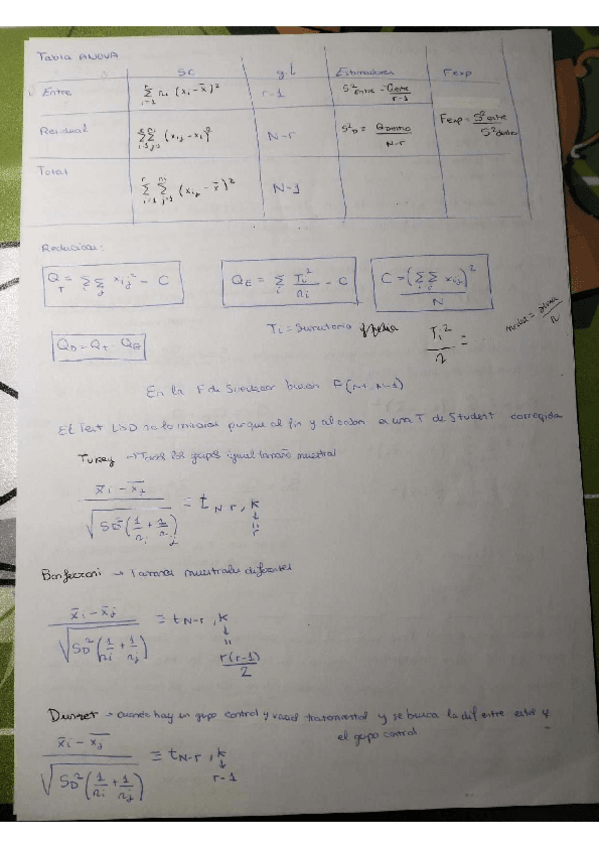 Tabla ANOVA
SC g.l Estimadores Fexp
Entre Σ_{i=1}^{r} n_i (x_i - x̄)² r-1 S²_Entre = Q_Entre / r-1
Residual Σ_{i=1}^{r} Σ_{j=1}^{n_i} (x_ij - x_i)² N-r S²_D = Q_Dentro / N-r Fexp = S²entre / S²dentro
Total Σ_{i=1}^{r} Σ_{j=1}^{n_i} (x_ij - x̄)² N-1
Q_T = Σ_i Σ_j x_ij² - C Q_E = Σ_i T_i² / n_i - C C = (Σ_i Σ_j x_ij)² / N
T_i = Sumatoria T_i² / n =
Q_D = Q_T - Q_E
En la F de Snedecor buscan
El Test LSD no lo miramos porque al fin y al cabo a una T de Student corregida
Tukey → Todos los grupos igual tamaño muestral
x̄_i - x̄_j / √(S_D² (1/n_i + 1/n_j)) ≡ t_{N-r, k}
↓
"
r
Bonferroni → Tamaños muestrales diferentes
x̄_i - x̄_j / √(S_D² (1/n_i + 1/n_j)) ≡ t_{N-r, k}
↓
"
r(r-1) / 2
Dunnet → Cuando hay un grupo control y varios tratamientos y se busca la dif entre estos y
el grupo control
x̄_i - x̄_j / √(S_D² (1/n_i + 1/n_j)) ≡ t_{N-r, k}
↓
r-1